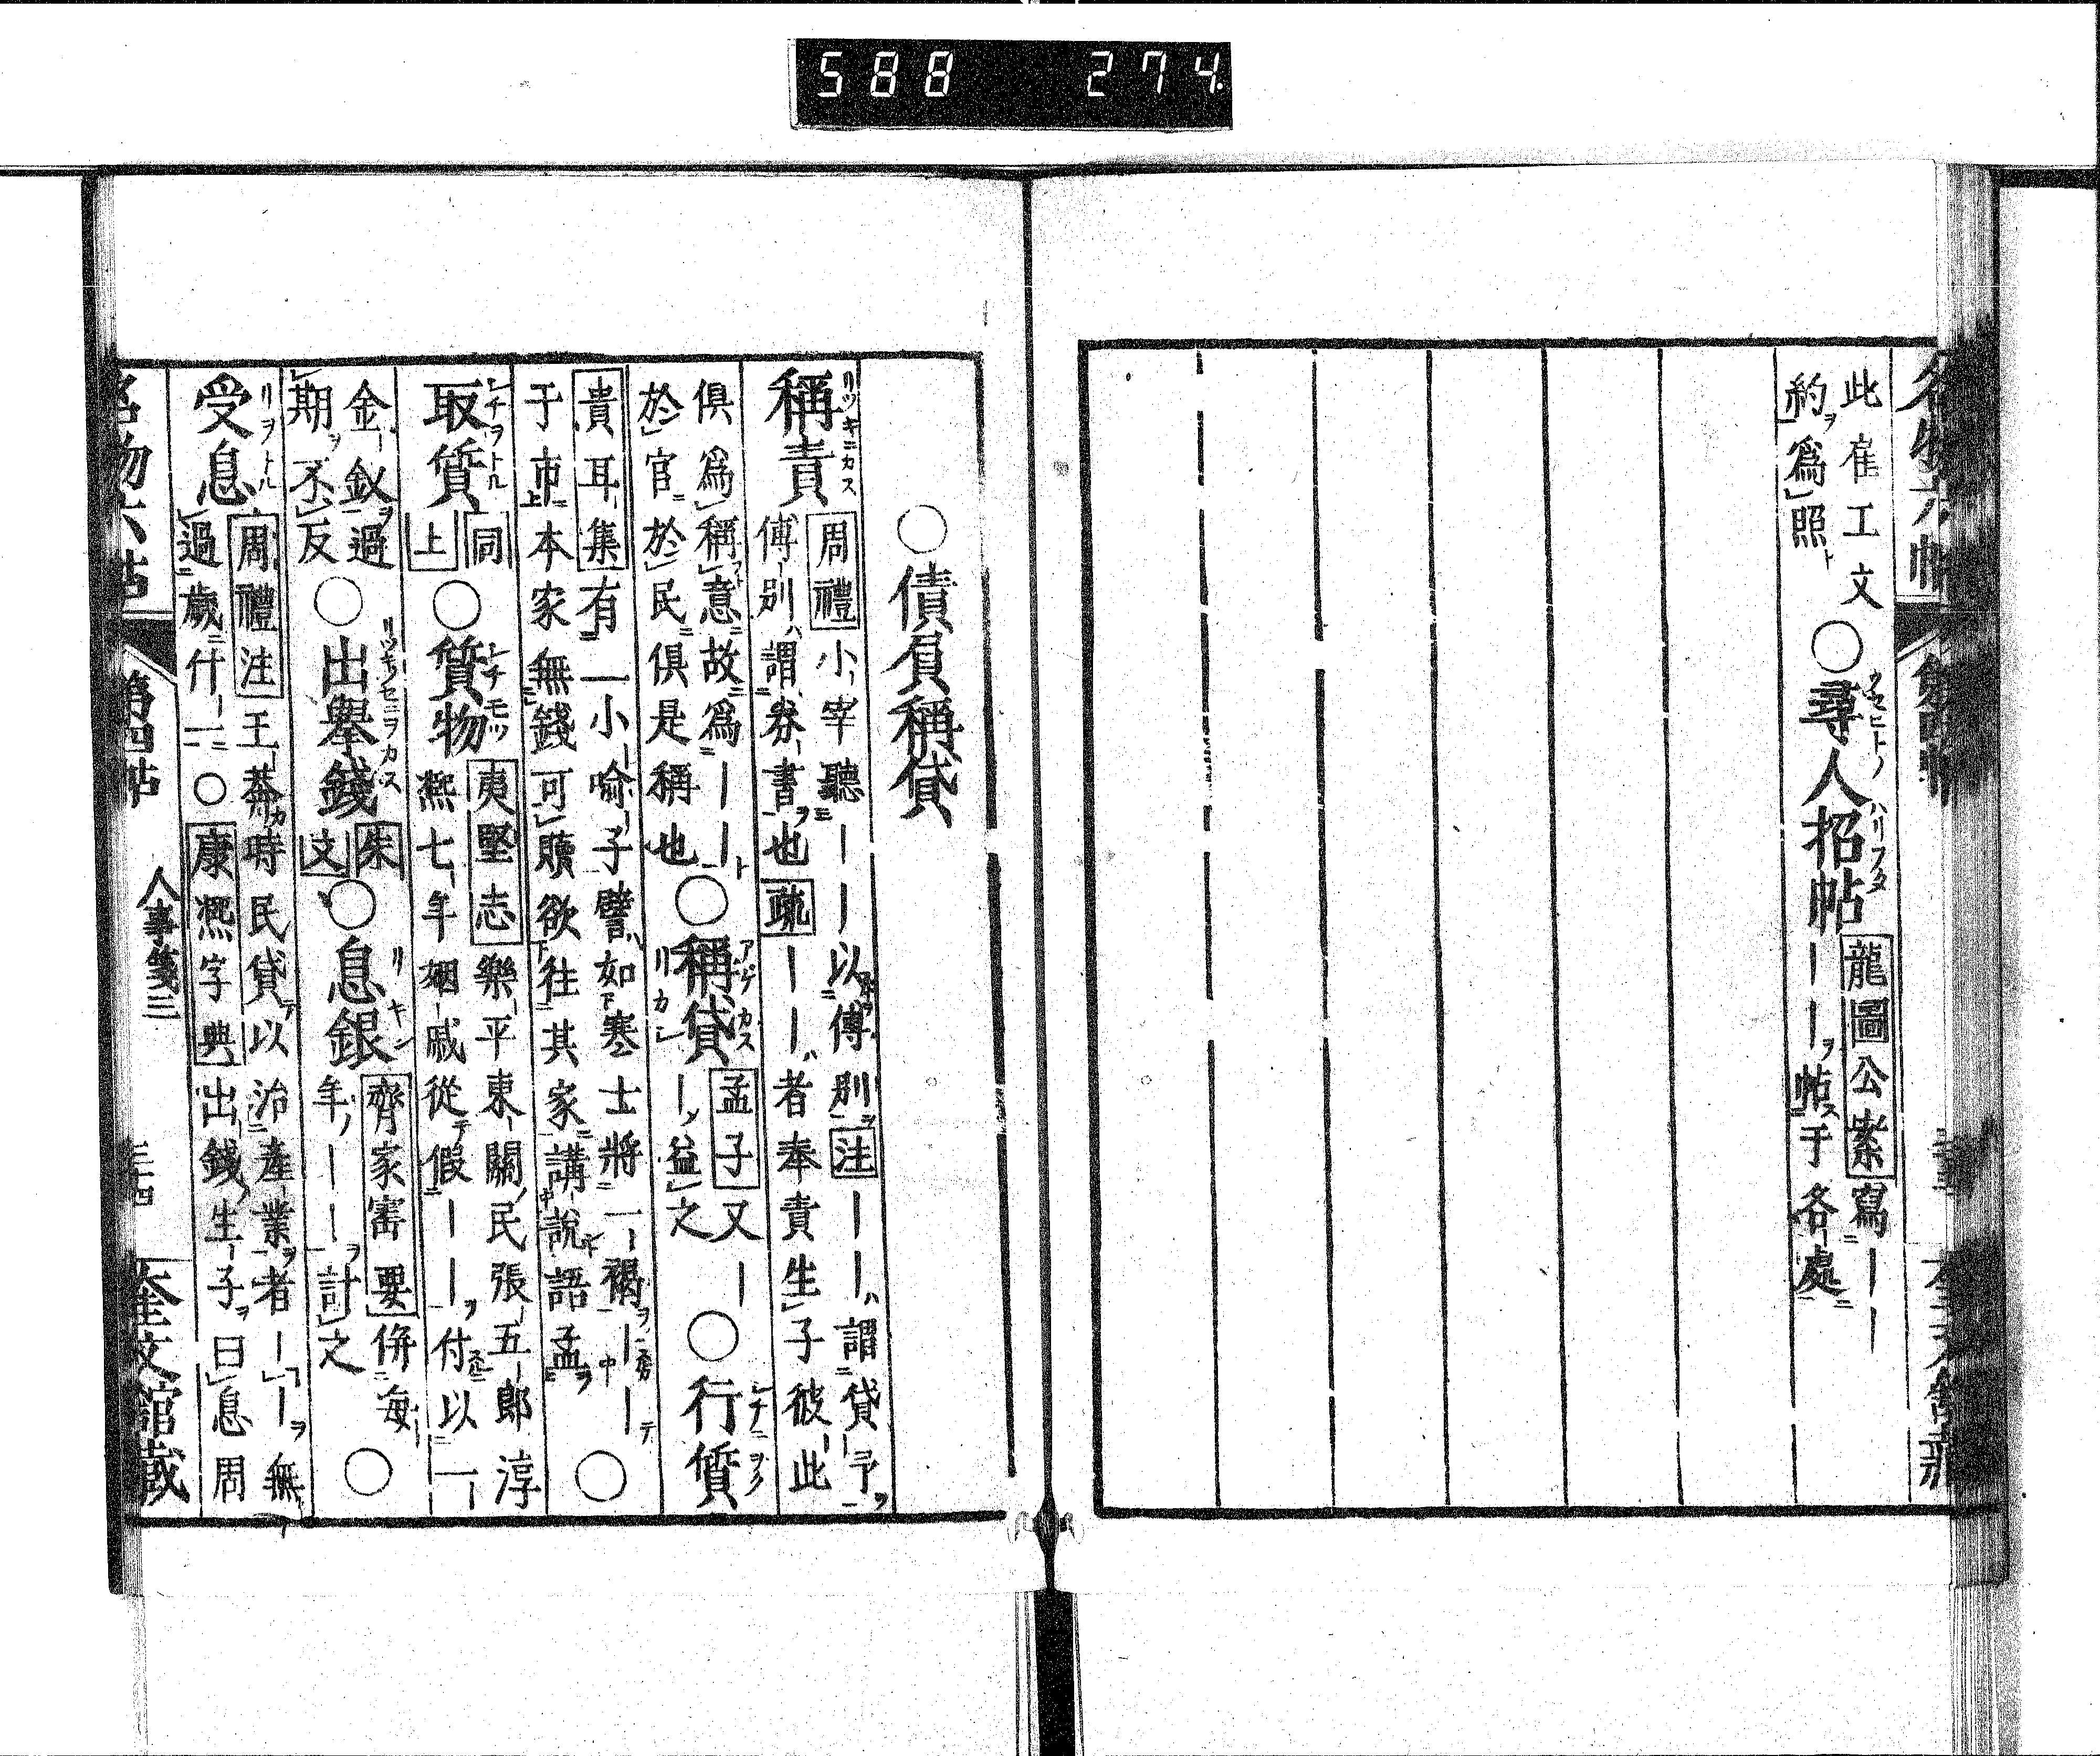 588 274
此雇工文
約ヲ爲照ト
○尋人招帖
龍圖公案寫二――
――ヲ帖ス于各處二
○債負稱貸
稱責
周禮小宰聽――以傅別注――ハ謂貸予ヲ
傅別ハ謂券書ヲ也疏――ハ者奉責生子彼此
俱爲稱意故爲――ト○稱貸 孟子又―
於官於民俱是稱也 ―メ益之○行質
貴耳集有一小喻子譬如寒士將一褐――テ
于市本家無錢可贖欲往其家講說語孟ヲ○
取質 同上○質物 夷堅志樂平東關民張五郎淳
熙七年姻戚從テ假――ヲ付以一
金釵ヲ過
期ヲ不反○出舉錢 朱文○息銀 齊家寶要併每
年ノ――ヲ計之○
受息 周禮注王莽時民貸テ以治產業ヲ者―ヲ無
過歲什一○康熙字典出錢生子ヲ曰息周
名物六帖 第四帖 人事箋三 三十四 奎文館藏